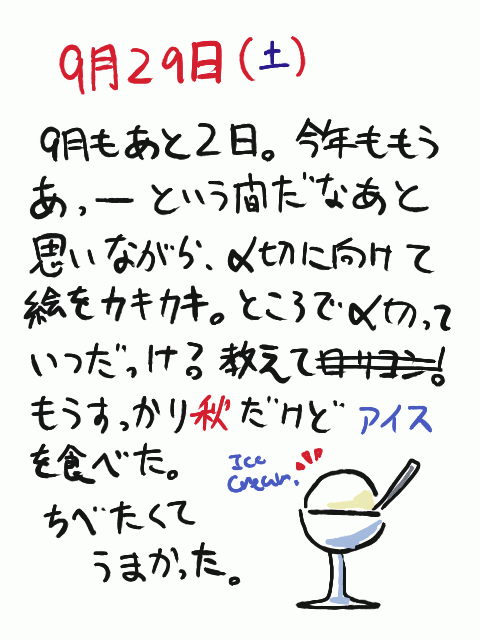 9月29日(土)
9月もあと2日。今年ももう
あっーという間だなあと
思いながら、〆切に向けて
絵をカキカキ。ところで〆切って
いつだっけ?教えて!
もうすっかり秋だけどアイス
を食べた。
Ice
Cream.
ちべたくて
うまかった。